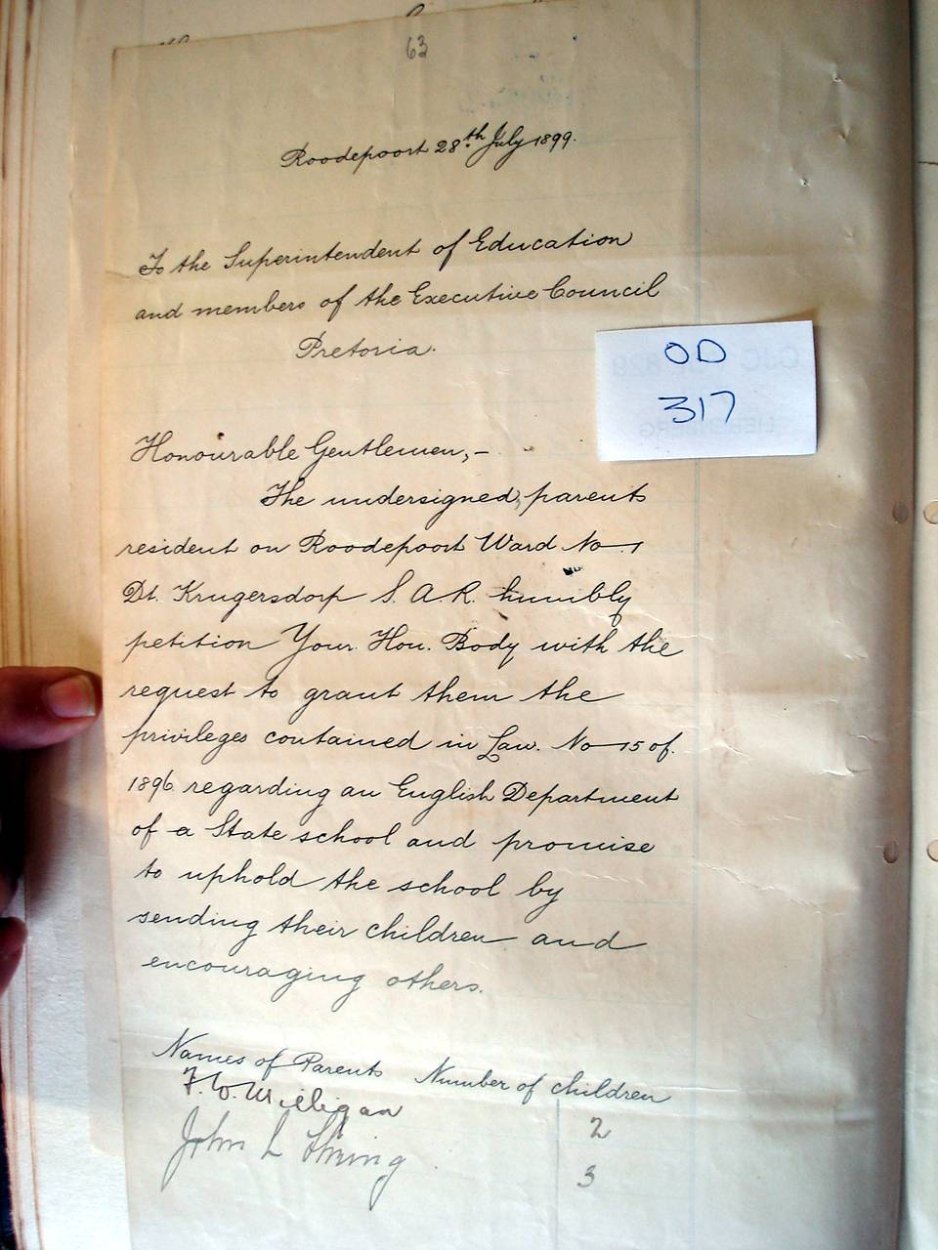 63
Roodepoort 28th July 1899.
To the Superintendent of Education
and members of the Executive Council
Pretoria.
OD
317
Honourable Gentlemen,-
The undersigned, parents
resident on Roodepoort Ward No 1
Dt. Krugersdorp S. A. R. humbly
petition Your Hon. Body with the
request to grant them the
privileges contained in Law. No 15 of.
1896 regarding an English Department
of a State school and promise
to uphold the school by
sending their children and
encouraging others.
Names of Parents Number of children
Milligan 2
John L 3